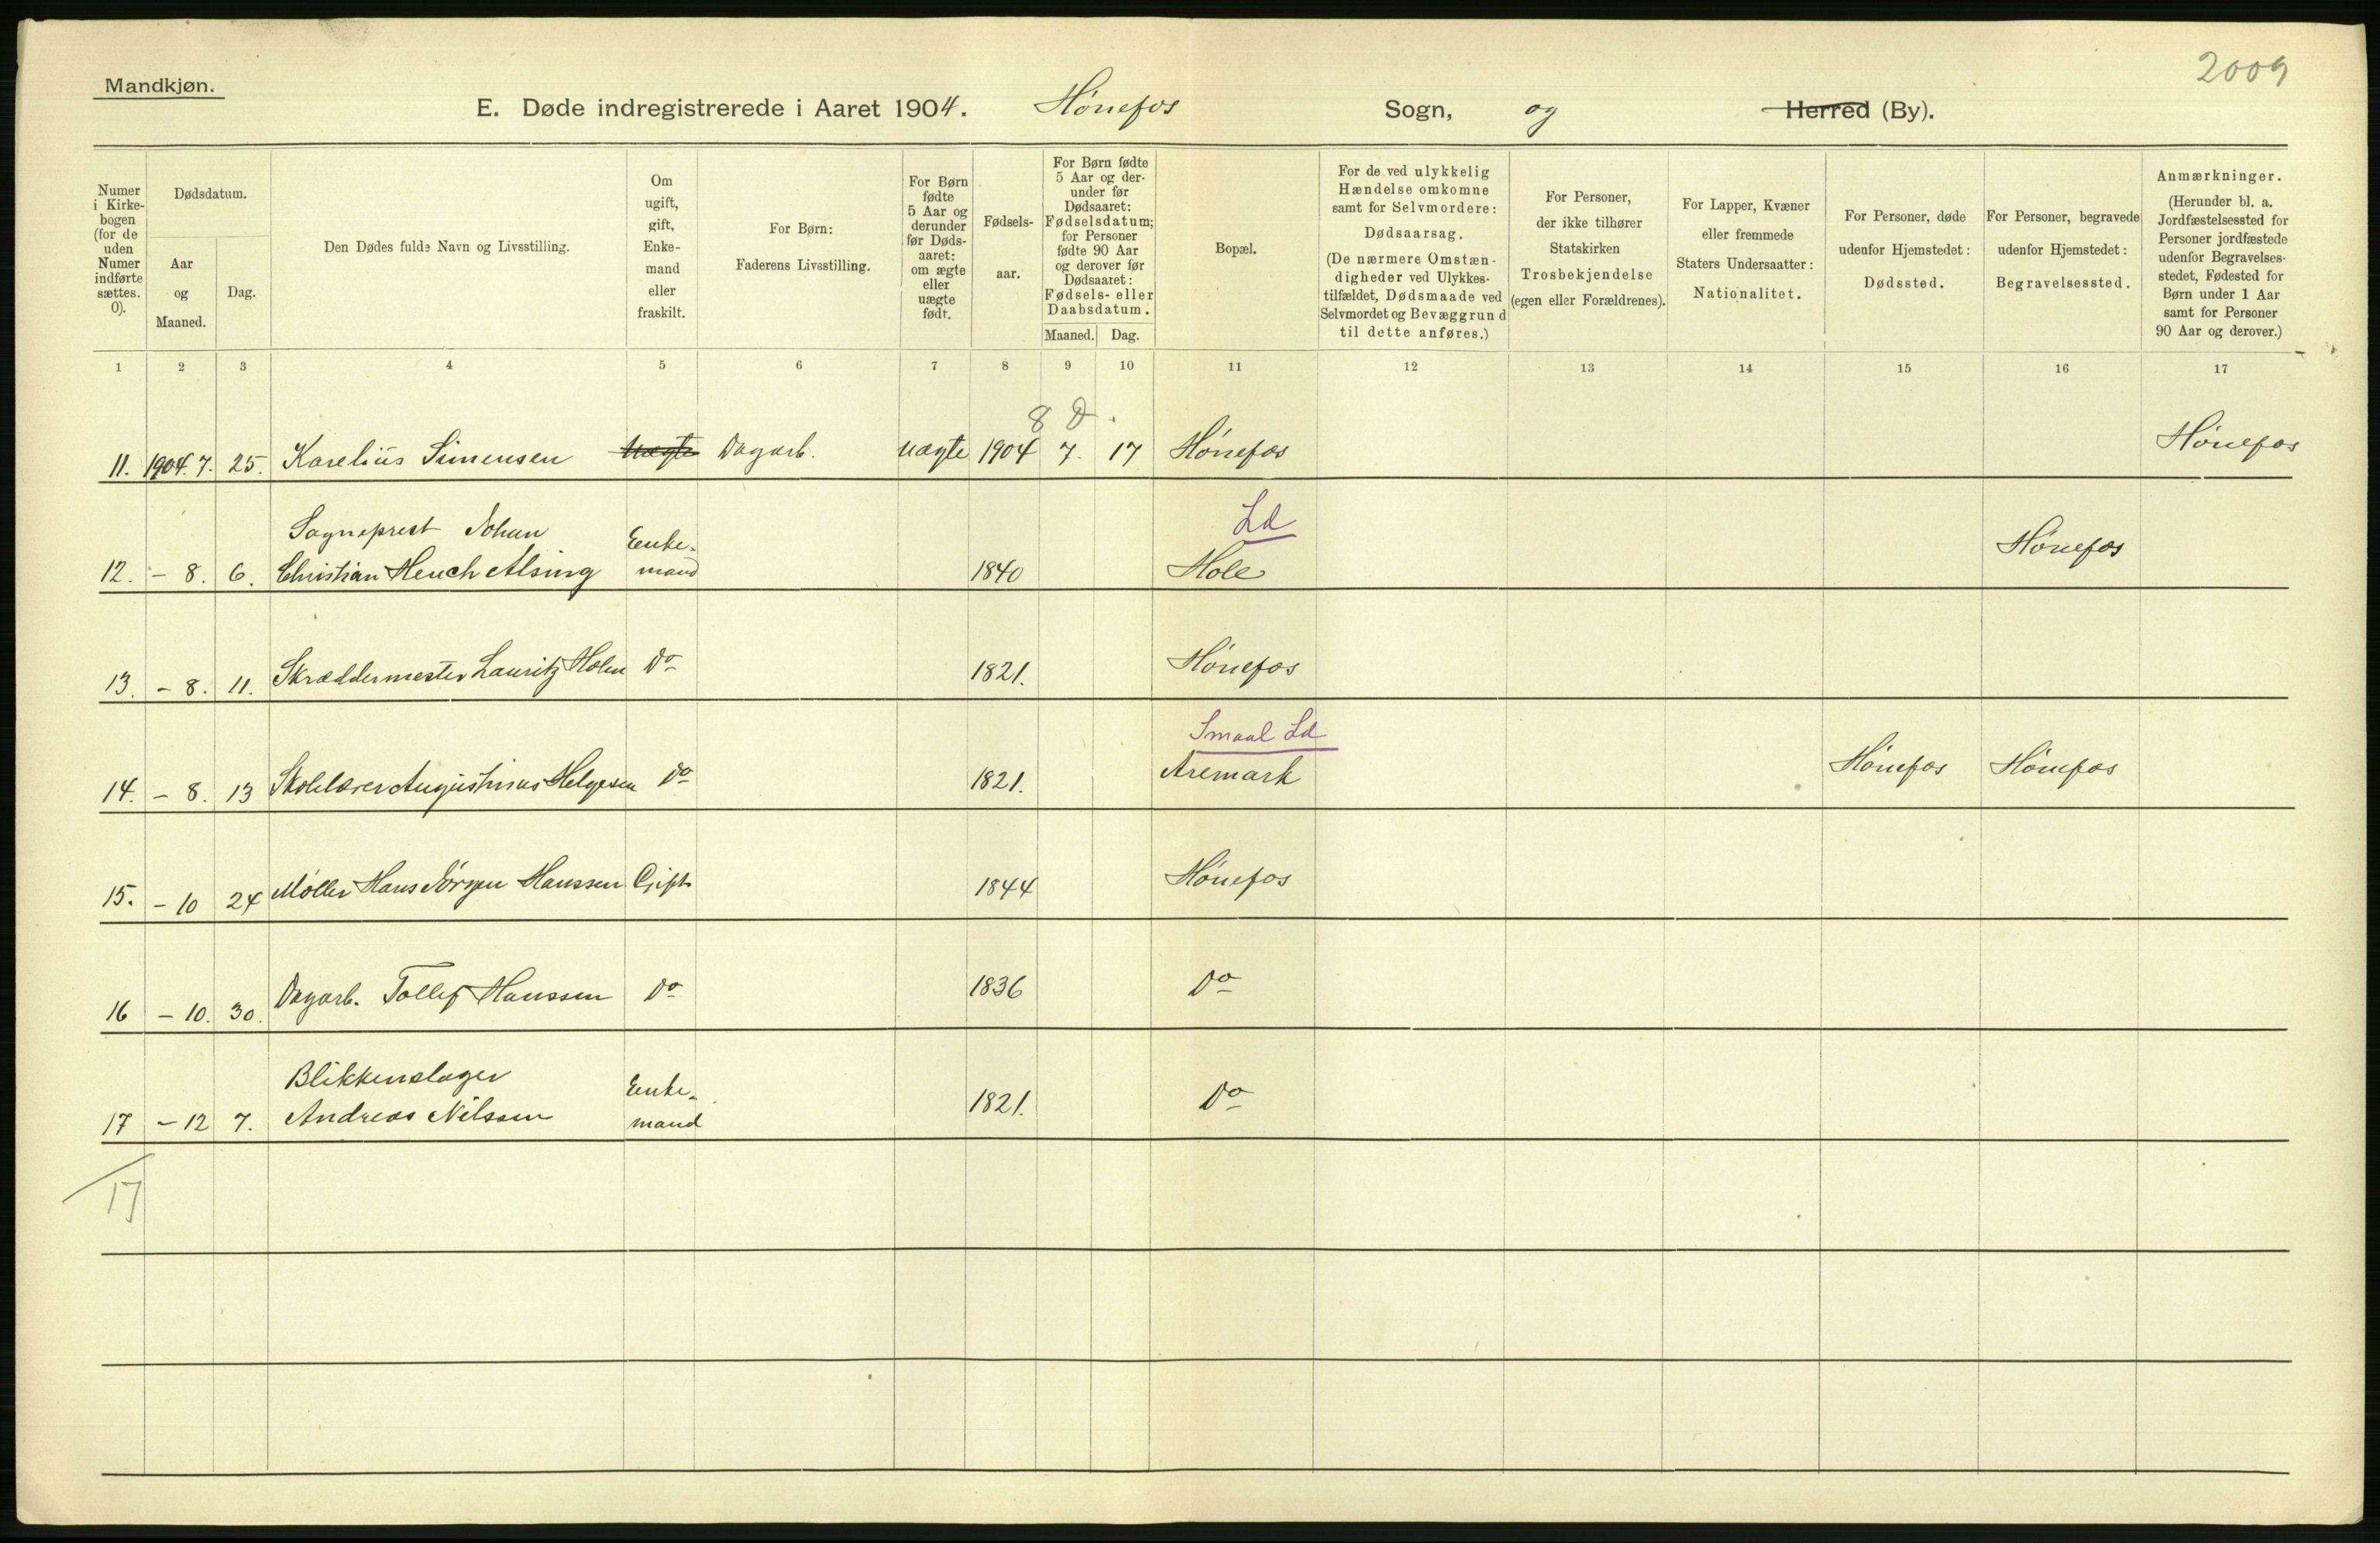 2009
Mandkjøn.
E. Døde indregistrerede i Aaret 1904. Hønefos Sogn, og Herred (By).
Numer i Kirkebogen (for de uden Numer indførte sættes. 0).
Dødsdatum.
Aar og Maaned.
Dag.
Den Dødes fulde Navn og Livsstilling.
Om ugift, gift, Enkemand eller fraskilt.
For Børn: Faderens Livsstilling.
For Børn fødte 5 Aar og derunder før Dødsaaret: om ægte eller uægte født.
Fødselsaar.
For Børn fødte 5 Aar og derunder før Dødsaaret: Fødselsdatum; for Personer fødte 90 Aar og derover før Dødsaaret: Fødsels- eller Daabsdatum.
Maaned. Dag.
Bopæl.
For de ved ulykkelig Hændelse omkomne samt for Selvmordere: Dødsaarsag. (De nærmere Omstændigheder ved Ulykkestilfældet, Dødsmaade ved Selvmordet og Bevæggrund til dette anføres.)
For Personer, der ikke tilhører Statskirken Trosbekjendelse (egen eller Forældrenes).
For Lapper, Kvæner eller fremmede Staters Undersaatter: Nationalitet.
For Personer, døde udenfor Hjemstedet: Dødssted.
For Personer, begravede udenfor Hjemstedet: Begravelsessted.
Anmærkninger. (Herunder bl. a. Jordfæstelsessted for Personer jordfæstede udenfor Begravelsesstedet, Fødested for Børn under 1 Aar samt for Personer 90 Aar og derover.)
1 2 3 4 5 6 7 8 9 10 11 12 13 14 15 16 17
8 D.
11. 1904. 7. 25. Karelius Simensen Uægte Dagarb. uægte 1904 7. 17 Hønefos Hønefos
Sogneprest Johan Enke- Ld
12. - 8. 6. Christian Heuch Alsing mand 1840 Hole Hønefos
13. - 8. 11. Skræddermester Lauritz Holm Do 1821. Hønefos
Smaal Ld
14. - 8. 13 Skolelærer Augustinus Helgesen Do 1821. Aremark Hønefos Hønefos
15. - 10 24 Møller Hans Jørgen Hanssen Gift 1844 Hønefos
16 - 10. 30. Dagarb. Tollef Hanssen Do 1836 Do
Blikkenslager Enke-
17 - 12 7. Andreas Nilssen mand 1821. Do
17